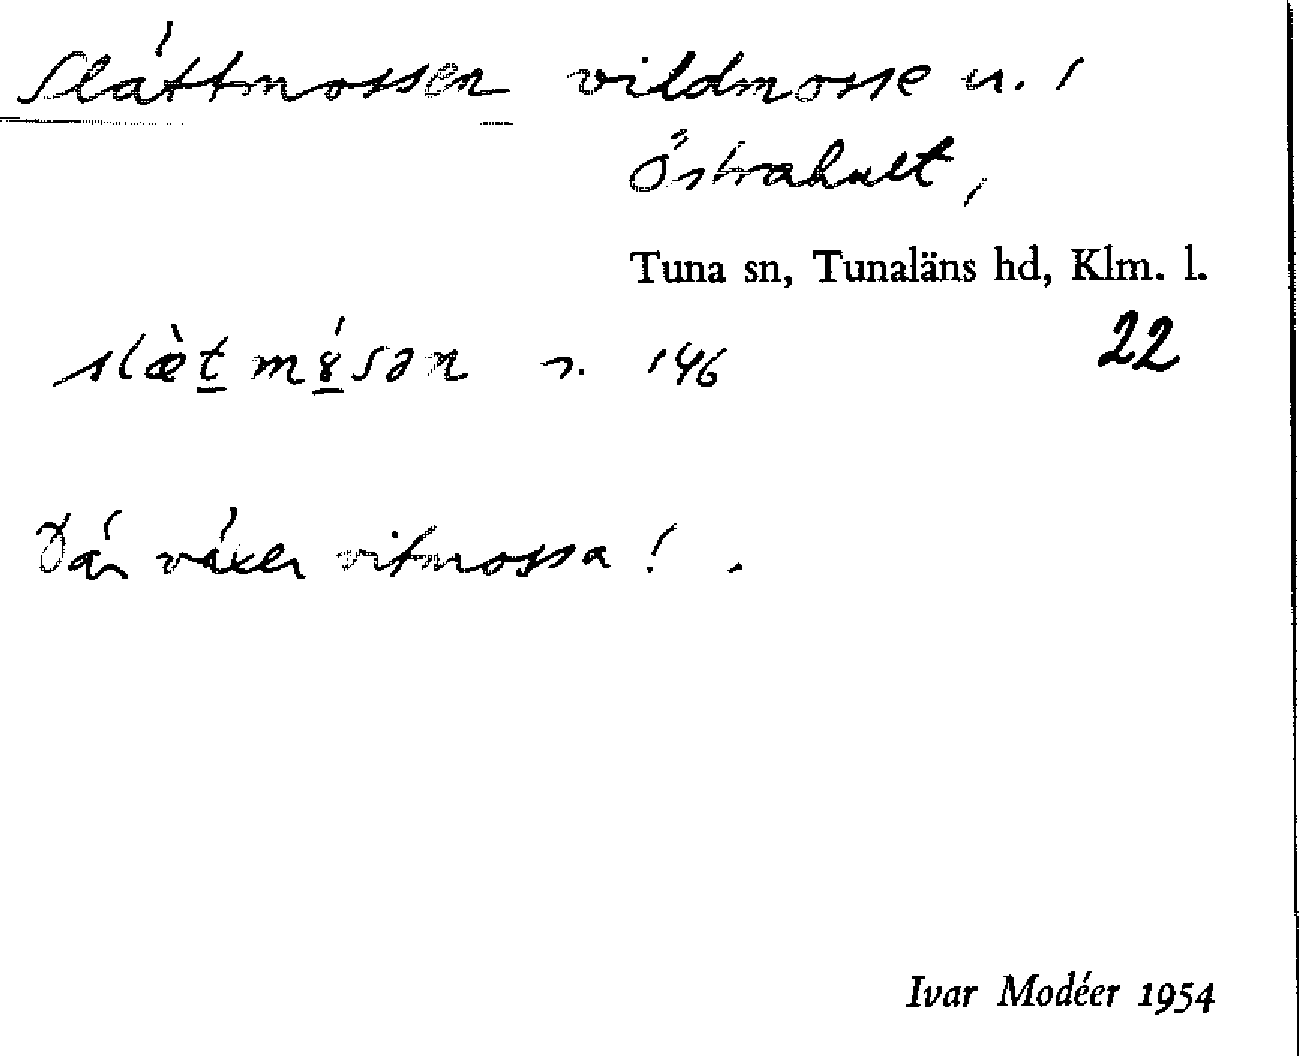 Slåttmossen vildmosse u. /
Östrahult,
Tuna sn, Tunaläns hd, Klm. l.
slæ̀t mɤ́sən s. 146
22
Där växer vitmossa! .
Ivar Modéer 1954